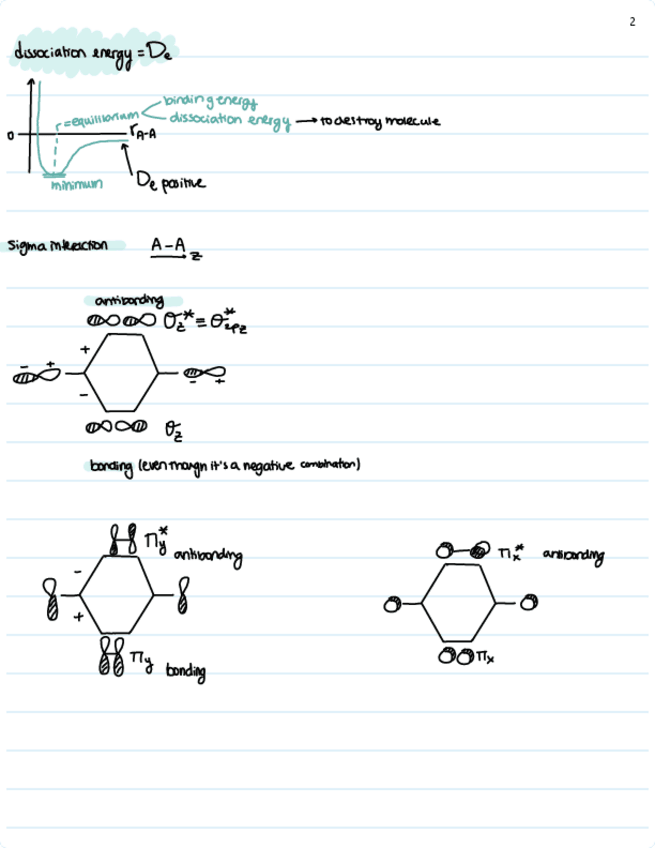 2
dissociation energy = De
binding energy
r = equilibrium
dissociation energy → to destroy molecule
0
rA-A
minimum
De positive
Sigma interaction A-A z
antibonding
σz* ≡ σ*2pz
+
- +
- +
-
σz
bonding (even though it's a negative combination)
πy* antibonding
πx* antibonding
-
+
πy bonding
πx